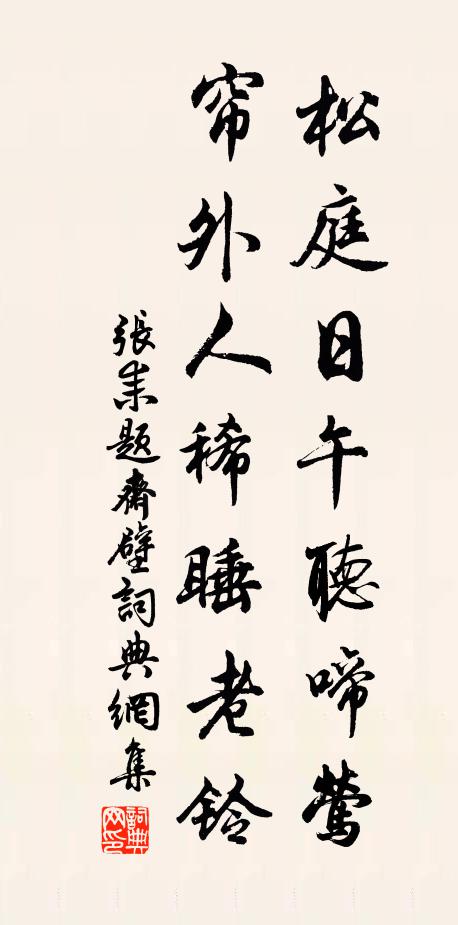 松庭日午聽啼鶯
帘外人稀睡老鈴
張耒題齋壁詞典網集
詞典网印